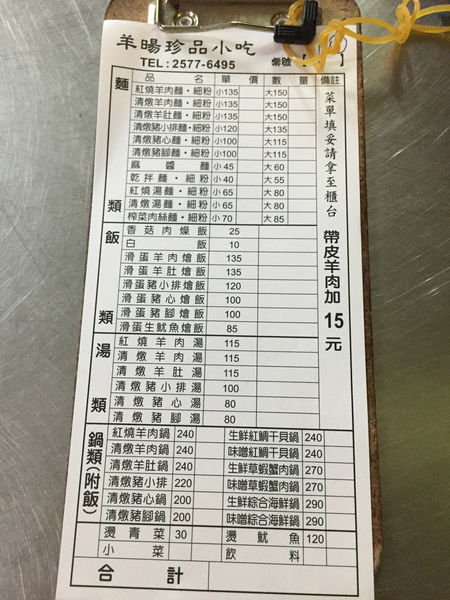 羊暘珍品小吃
TEL:2577-6495 桌號【 】
品名 單價 數量 備註
麵類
紅燒羊肉麵・細粉 小135 大150
清燉羊肉麵・細粉 小135 大150
清燉羊肚麵・細粉 小135 大150
清燉豬小排麵・細粉 小120 大135
清燉豬心麵・細粉 小100 大115
清燉豬腳麵・細粉 小100 大115
麻醬麵 小45 大60
乾拌麵・細粉 小40 大55
紅燒湯麵・細粉 小65 大80
清燉湯麵・細粉 小65 大80
榨菜肉絲麵・細粉 小70 大85
飯類
香菇肉燥飯 25
白飯 10
滑蛋羊肉燴飯 135
滑蛋羊肚燴飯 135
滑蛋豬小排燴飯 120
滑蛋豬心燴飯 100
滑蛋豬腳燴飯 100
滑蛋生魷魚燴飯 85
湯類
紅燒羊肉湯 115
清燉羊肉湯 115
清燉羊肚湯 115
清燉豬小排湯 100
清燉豬心湯 80
清燉豬腳湯 80
菜單填妥請拿至櫃台
帶皮羊肉加15元
鍋類(附飯)
紅燒羊肉鍋 240 生鮮紅鯛干貝鍋 240
清燉羊肉鍋 240 味噌紅鯛干貝鍋 240
清燉羊肚鍋 240 生鮮草蝦蟹肉鍋 270
清燉豬小排 220 味噌草蝦蟹肉鍋 270
清燉豬心鍋 200 生鮮綜合海鮮鍋 290
清燉豬腳鍋 200 味噌綜合海鮮鍋 290
燙青菜 30 燙魷魚 120
小菜 飲料
合計